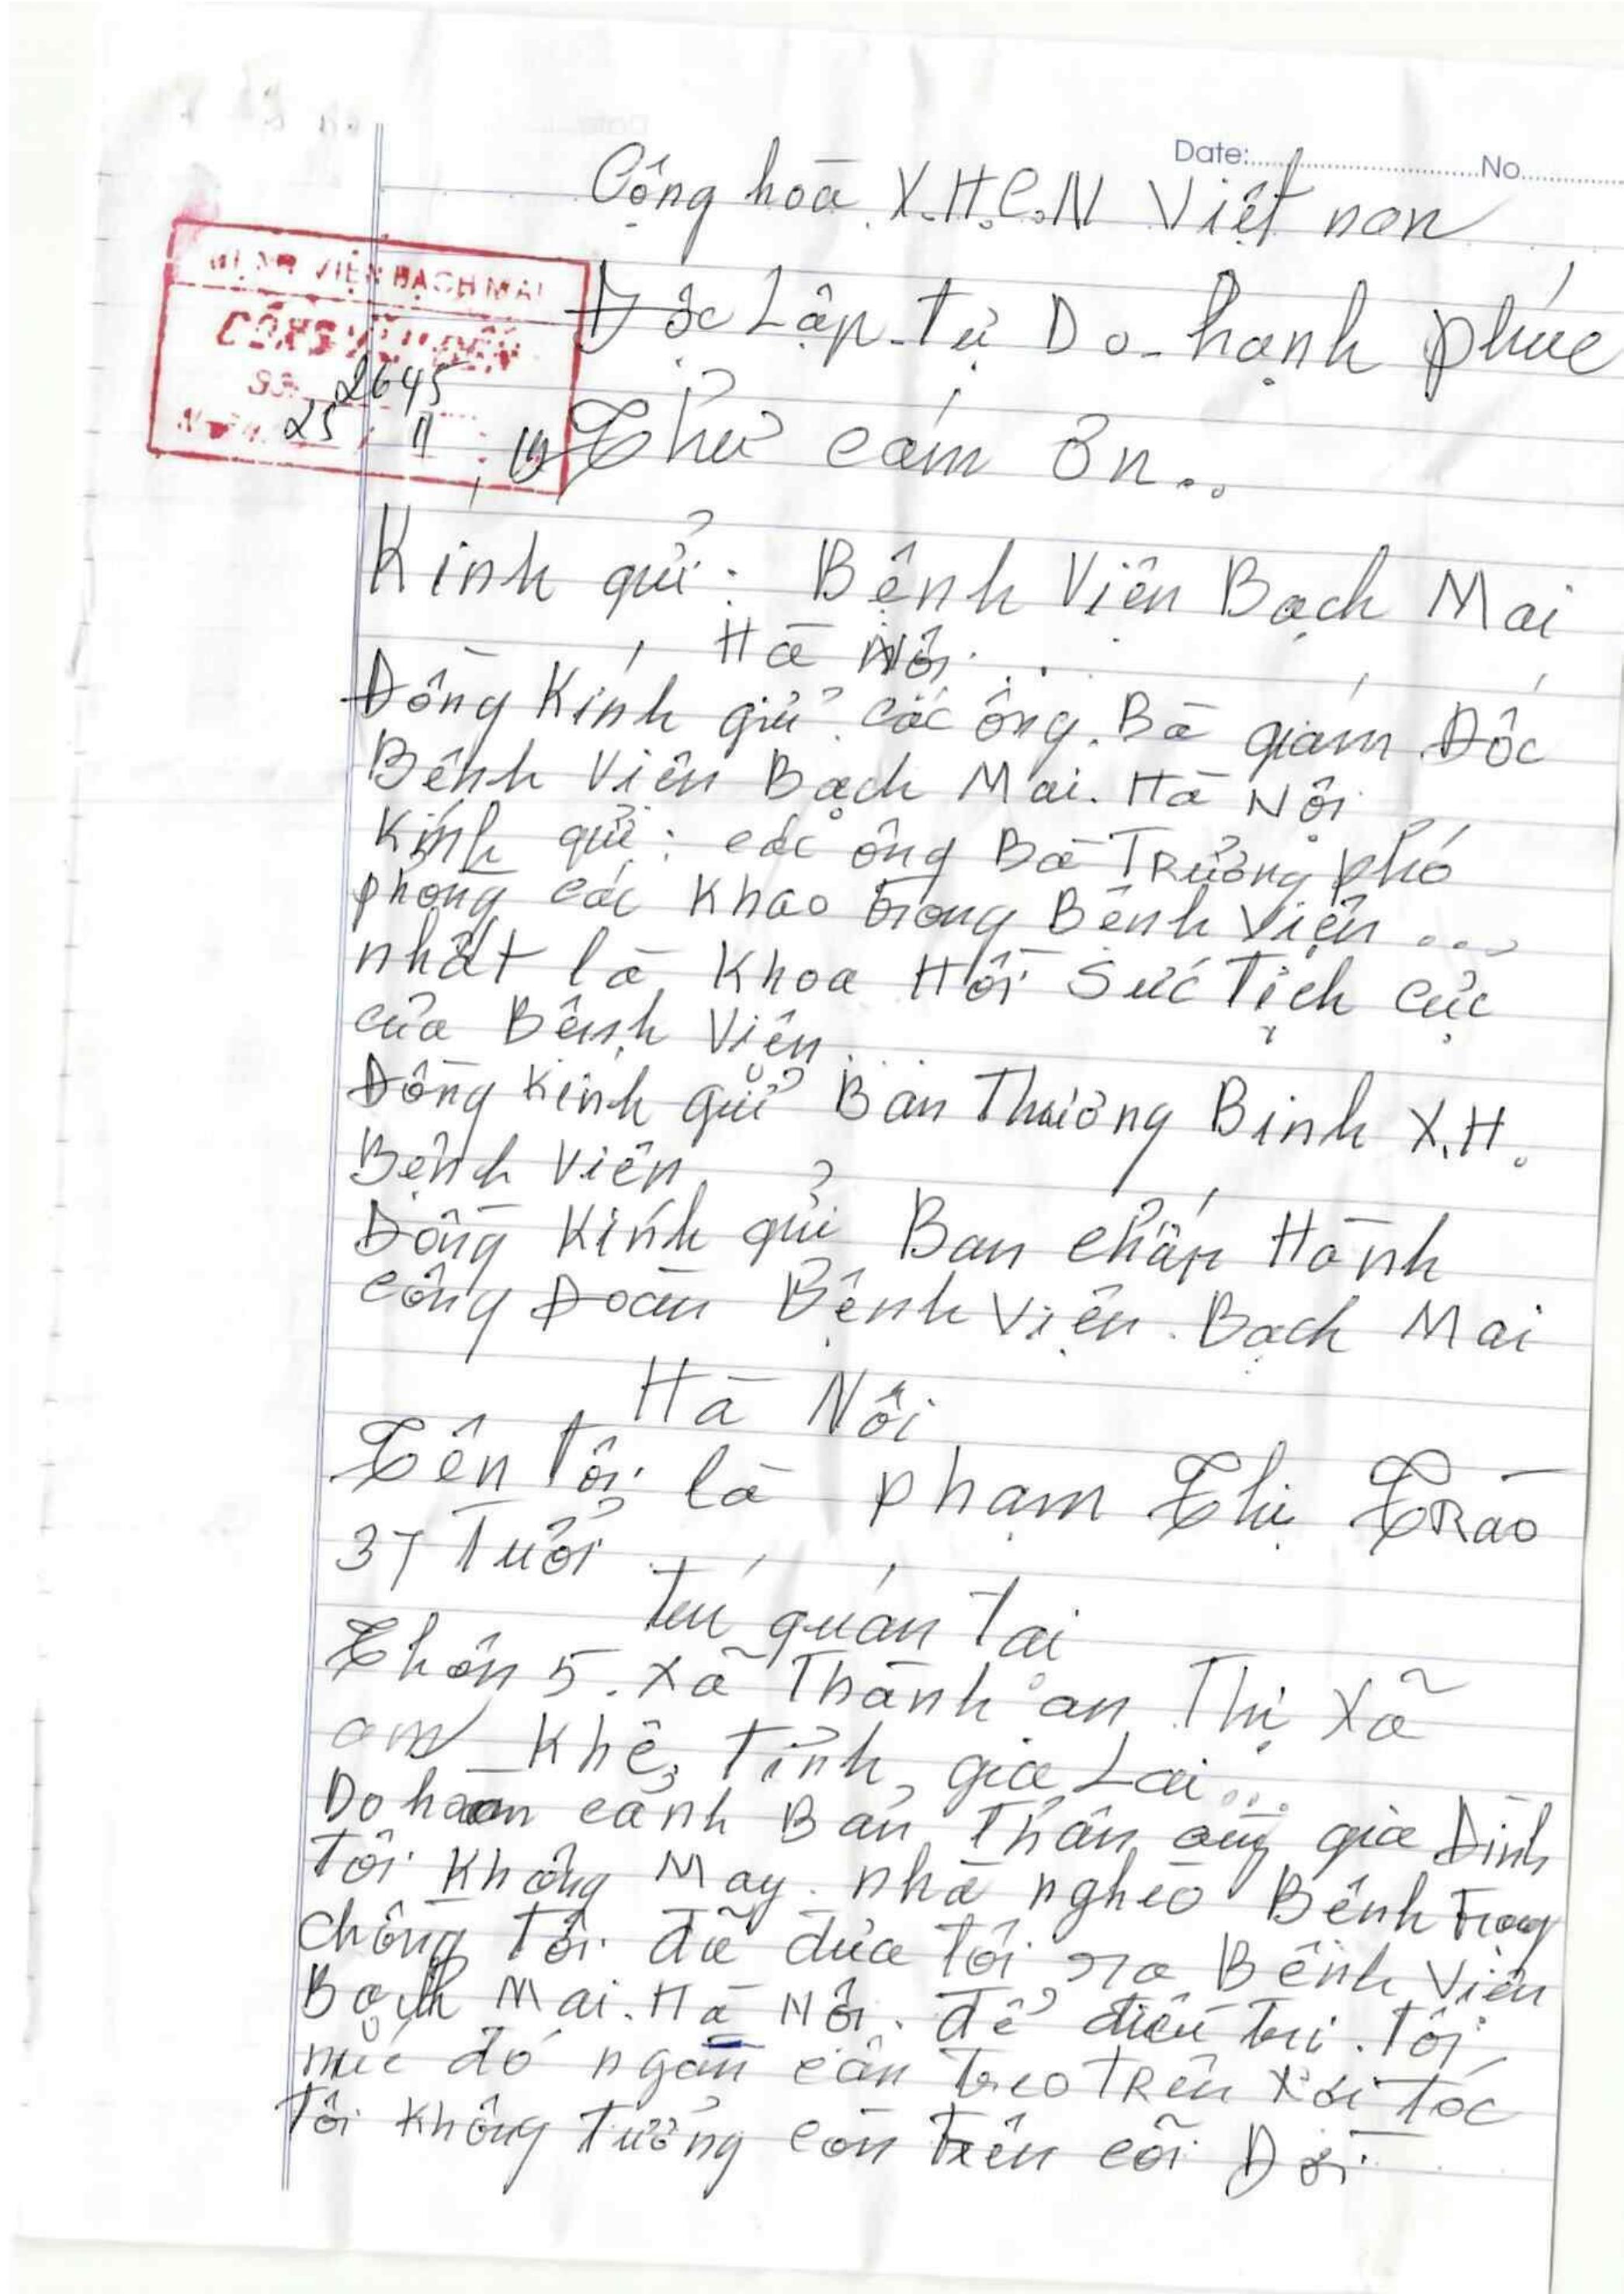 Date: No
Cộng hòa X.H.C.N Việt nam
BỆNH VIỆN BẠCH MAI
CÔNG VĂN ĐẾN
Số 2645
25 11 19
Độc Lập-Tự Do-hạnh phúc
Thư cám ơn..
Kính gửi: Bệnh Viện Bạch Mai
Hà Nội
Đồng Kính gửi các ông. Bà giám Đốc
Bệnh Viện Bạch Mai. Hà Nội
Kính gửi: các ông Bà Trưởng phó
phòng các Khao trong Bệnh Viện ...
nhất là Khoa Hồi Sức Tích Cực
của Bệnh Viện
Đồng Kính gửi Ban Thương Binh X.H.
Bệnh Viện
Đồng Kính gửi Ban chấp Hành
công Đoàn Bệnh Viện. Bạch Mai
Hà Nội
Tên Tôi là phạm Thị Trào
37 Tuổi
trú quán Tại
Thôn 5. Xã Thành an Thị Xã
an Khê, Tỉnh, gia Lai...
Do hoàn cảnh Bản Thân gia Đình
Tôi Không May. nhà nghèo Bệnh trọng
chồng Tôi đã đưa Tôi ra Bệnh Viện
Bạch Mai. Hà Nội. để điều trị. Tôi
núc đó ngàn cân treo TRên Xợi Tóc
Tôi Không Tưởng còn trên cõi Đời